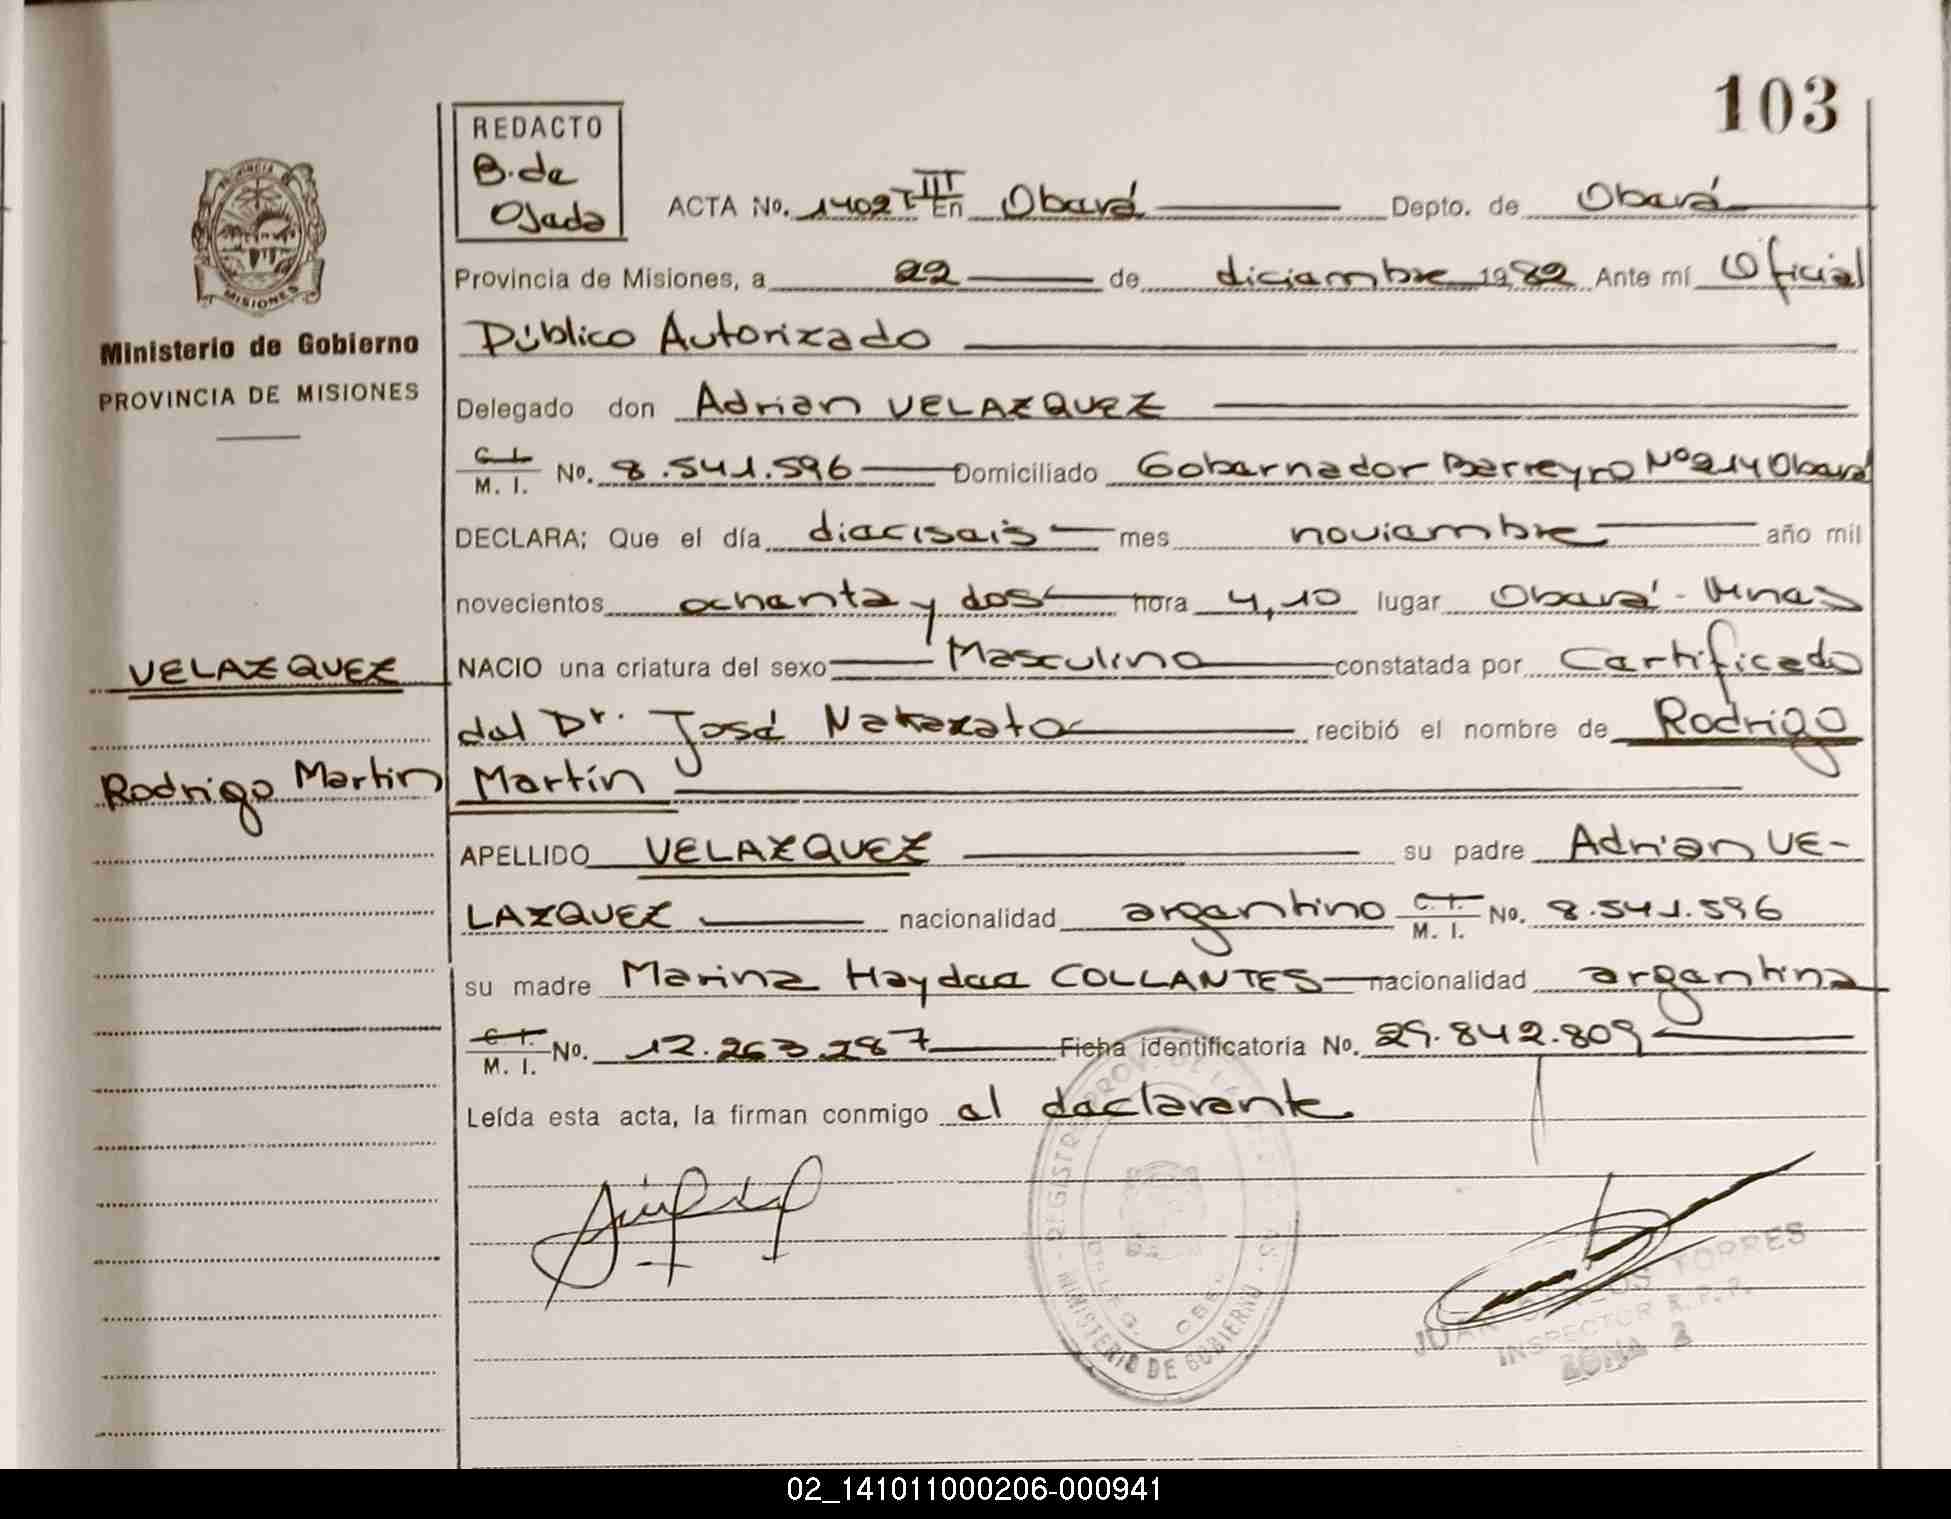 103
REDACTO
B. de
Ojeda
ACTA No. 1402 T III En Oberá Depto. de Oberá
Provincia de Misiones, a 22 de diciembre 1982 Ante mí Oficial
Público Autorizado
Ministerio de Gobierno
PROVINCIA DE MISIONES
Delegado don Adrian VELAZQUEZ
C. I. M. I. No. 8.541.596 Domiciliado Gobernador Barreyro Nº 214 Oberá
DECLARA; Que el día dieciseis mes noviembre año mil
novecientos ochenta y dos hora 4,10 lugar Oberá - Mnes
VELAZQUEZ
NACIO una criatura del sexo Masculino constatada por Certificado
del Dr. José Nakazato recibió el nombre de Rodrigo
Rodrigo Martin
Martín
APELLIDO VELAZQUEZ su padre Adrian VE-
LAZQUEZ nacionalidad argentino C. I. M. I. No. 8.541.596
su madre Marina Haydee COLLANTES nacionalidad argentina
C. I. M. I. No. 12.263.287 Ficha identificatoria No. 29.842.809
Leída esta acta, la firman conmigo el declarante
MINISTERIO DE GOBIERNO
TORRES
INSPECTOR R. P. P.
ZONA 2
02_141011000206-000941